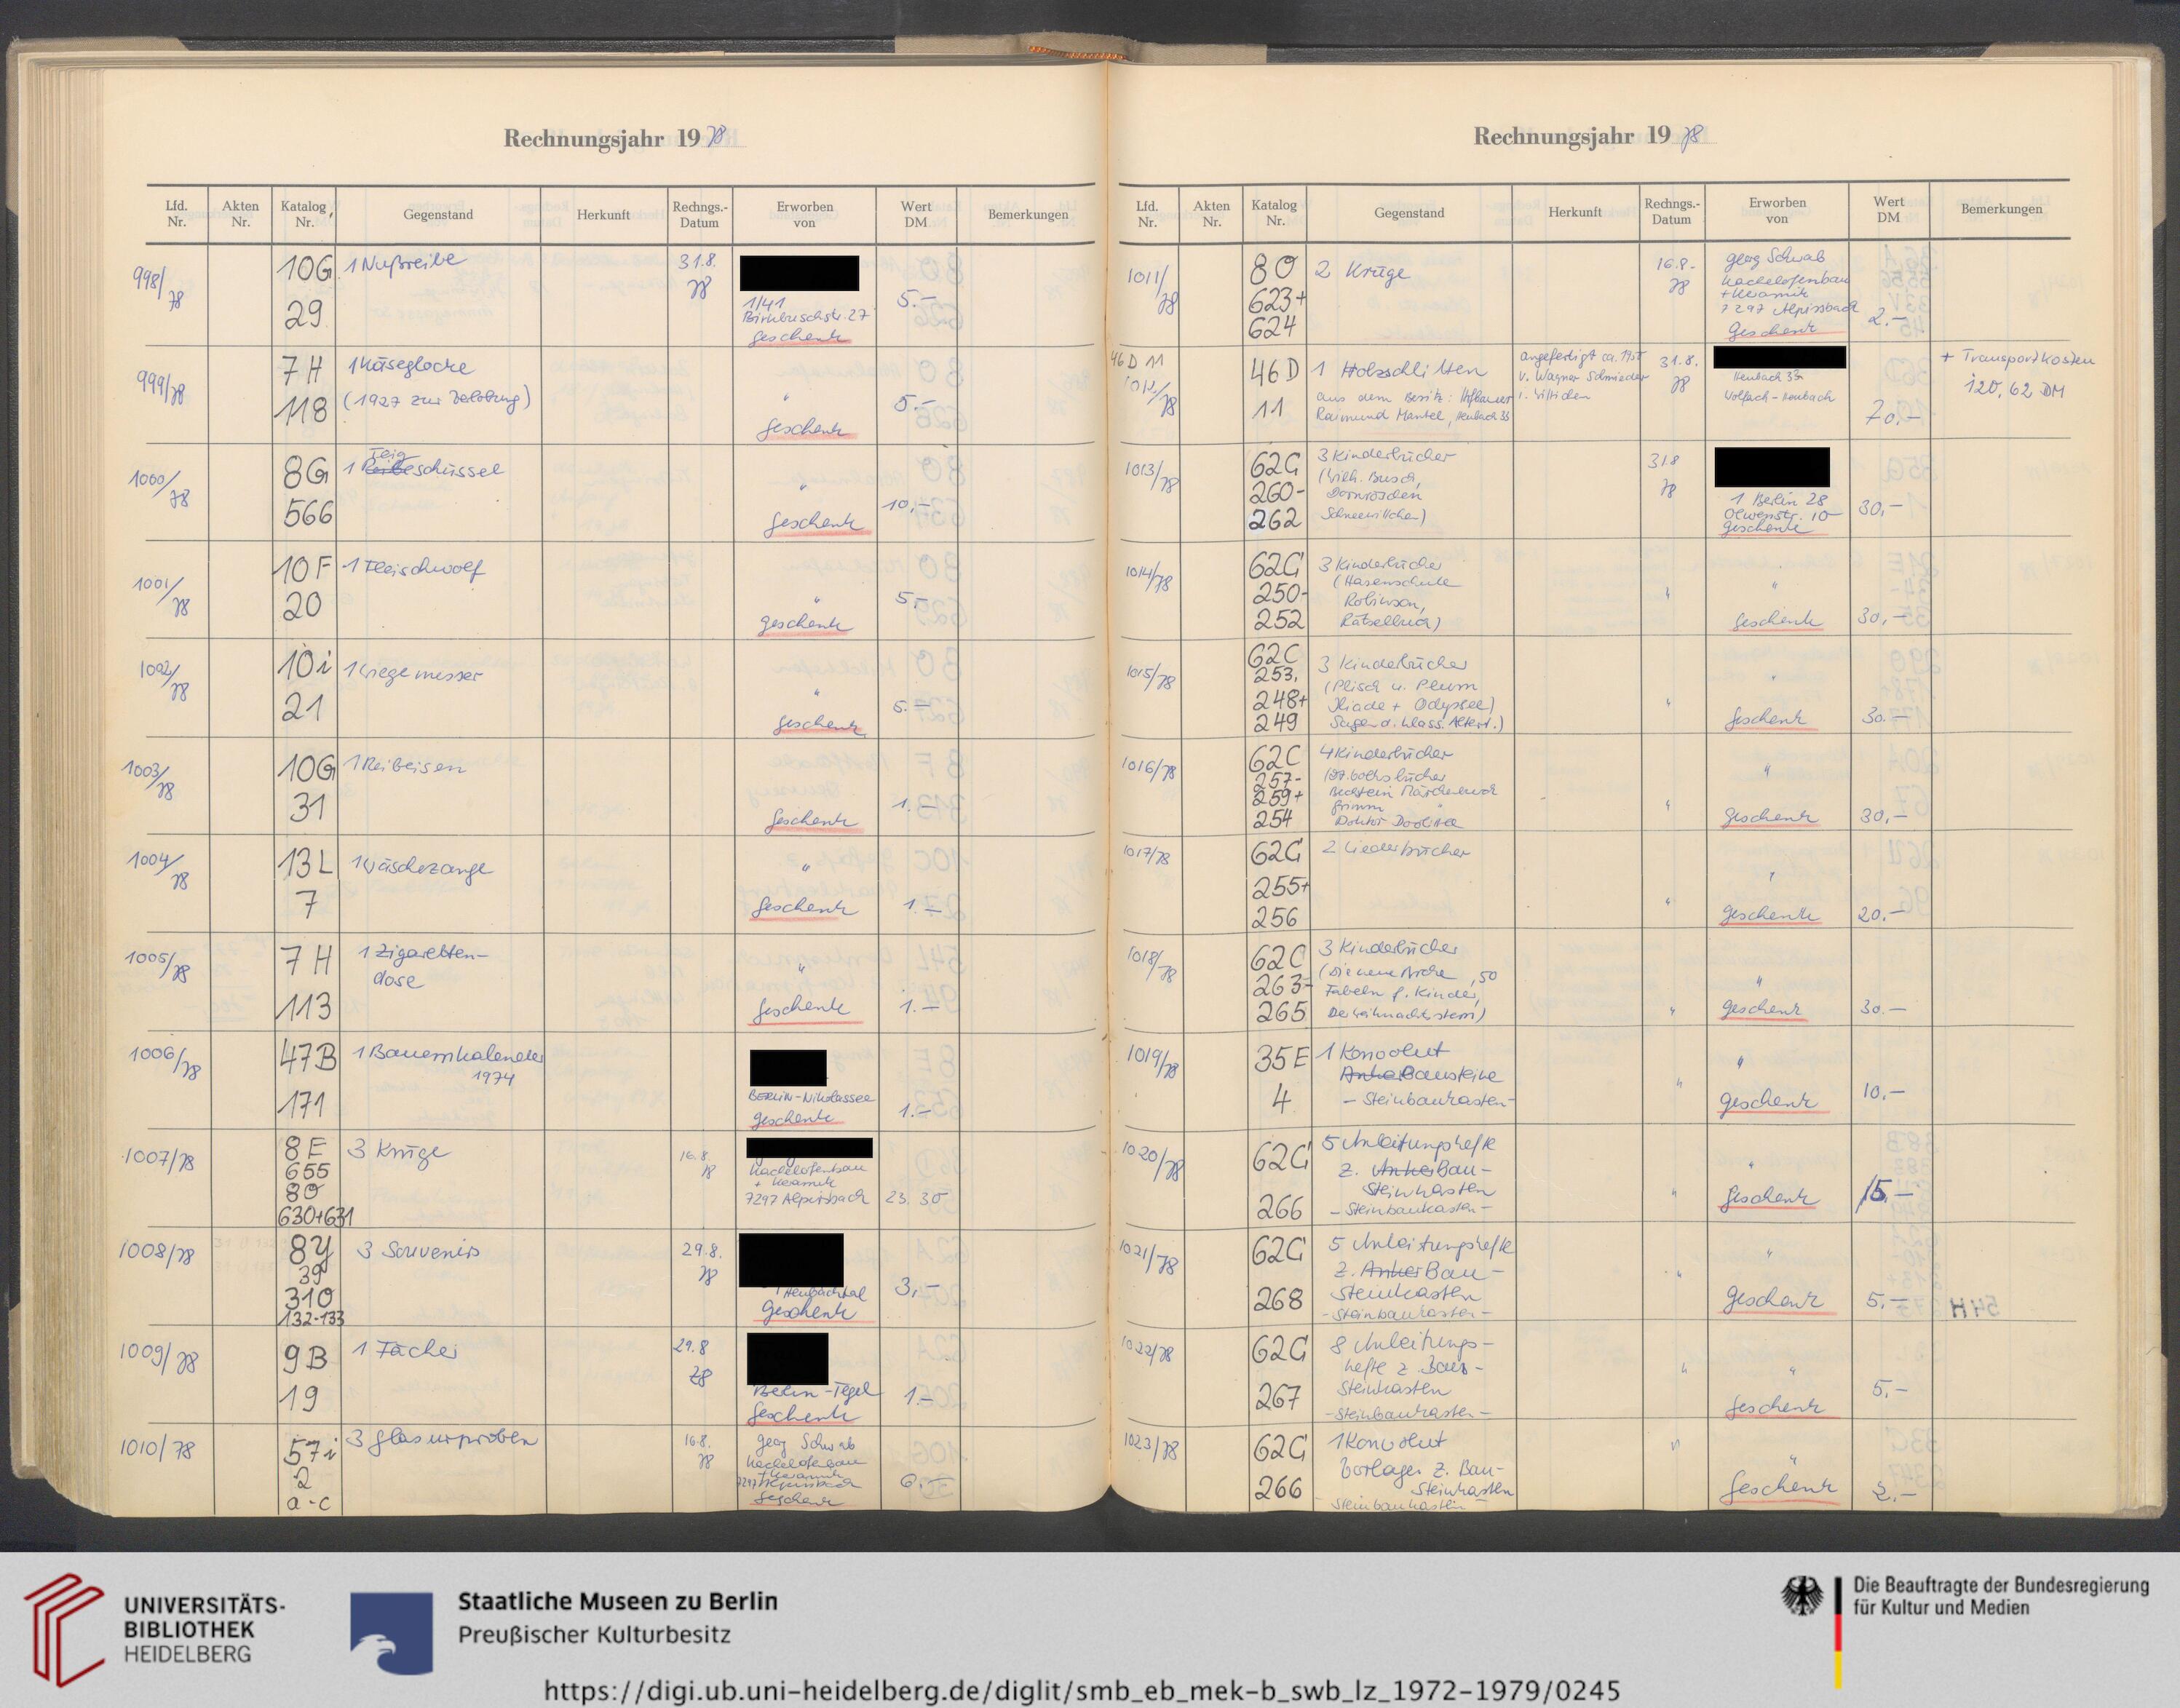 Rechnungsjahr 1978
Lfd. Nr. Akten Nr. Katalog Nr. Gegenstand Herkunft Rechngs.-Datum Erworben von Wert DM Bemerkungen
998/78 10G 29 1 Nußreibe 31.8. 78 1/41
Birkbuschstr. 27
Geschenk 5.-
999/78 7H 118 1 Käseglocke
(1927 zur Verlobung) " Geschenk 5.-
1000/78 8G 566 1 Teigschüssel " Geschenk 10,-
1001/78 10F 20 1 Fleischwolf " Geschenk 5,-
1002/78 10i 21 1 Wiegemesser " Geschenk 5.-
1003/78 10G 31 1 Reibeisen Geschenk 1.-
1004/78 13L 7 1 Wäschezange " Geschenk 1.-
1005/78 7H 113 1 Zigaretten-
dose " Geschenk 1.-
1006/78 47B 171 1 Bauernkalender
1974 BERLIN-Nikolassee
Geschenk 1.-
1007/78 8E 655 80 630+631 3 Krüge 16.8. 78 Kachelofenbau
+ Keramik
7297 Alpirsbach 23.30
1008/78 8Y 39 310 132-133 3 Souvenirs 29.8. 78 Heubachtal
Geschenk 3,-
1009/78 9B 19 1 Fächer 29.8 78 Berlin-Tegel
Geschenk 1.-
1010/78 57i 2 a-c 3 Glasurproben 16.8. 78 Georg Schwab
Kachelofenbau
+ Keramik
7297 Alpirsbach
Geschenk 6.-
Rechnungsjahr 1978
Lfd. Nr. Akten Nr. Katalog Nr. Gegenstand Herkunft Rechngs.-Datum Erworben von Wert DM Bemerkungen
1011/78 80 623+ 624 2 Krüge 16.8.- 78 Georg Schwab
Kachelofenbau
+ Keramik
7297 Alpirsbach
Geschenk 2.-
46 D 11
1012/78 46D 11 1 Holzschlitten
aus dem Besitz:
Raimund Mantel, Heubach 33 angefertigt ca.
v. Wagner Schmieder 31.8. 78 Heubach 33
Wolfach-Heubach 70.- + Transportkosten
120,62 DM
1013/78 62G 260- 262 3 Kinderbücher
(Wilh. Busch,
Dornröschen
Schneewittchen) 31.8 78 1 Berlin 28
Geschenk 30,-
1014/78 62G 250- 252 3 Kinderbücher
(Hasenschule
Robinson,
Rätselbuch) " " Geschenk 30,-
1015/78 62C 253, 248+ 249 3 Kinderbücher
(Plisch u. Plum
Iliade + Odyssee)
Sagen d. klass. Altert.) " Geschenk 30.-
1016/78 62C 257- 259+ 254 4 Kinderbücher
Bechstein Märchenbuch
Grimm "
Doktor Doolittle " " Geschenk 30,-
1017/78 62G 255+ 256 2 Liederbücher " " Geschenk 20.-
1018/78 62C 263- 265 3 Kinderbücher
(Die neue Arche, 50
Fabeln f. Kinder,
Der Weihnachtsstern) " " Geschenk 30.-
1019/78 35E 4 1 Konvolut
Ankerbausteine
- Steinbaukasten - " " Geschenk 10,-
1020/78 62G 266 5 Anleitungshefte
z. AnkerBau-
Steinkasten
- Steinbaukasten - " " Geschenk 15.-
1021/78 62G 268 5 Anleitungshefte
z. AnkerBau-
Steinkasten
- Steinbaukasten - " " Geschenk 5.-
1022/78 62G 267 8 Anleitungs-
hefte z. Bau-
Steinkasten
- Steinbaukasten - " " Geschenk 5.-
1023/78 62G 266 1 Konvolut
Vorlagen z. Bau-
Steinkasten
- Steinbaukasten - " " Geschenk 2.-
UNIVERSITÄTS-
BIBLIOTHEK
HEIDELBERG
Staatliche Museen zu Berlin
Preußischer Kulturbesitz
Die Beauftragte der Bundesregierung
für Kultur und Medien
https://digi.ub.uni-heidelberg.de/diglit/smb_eb_mek-b_swb_lz_1972-1979/0245